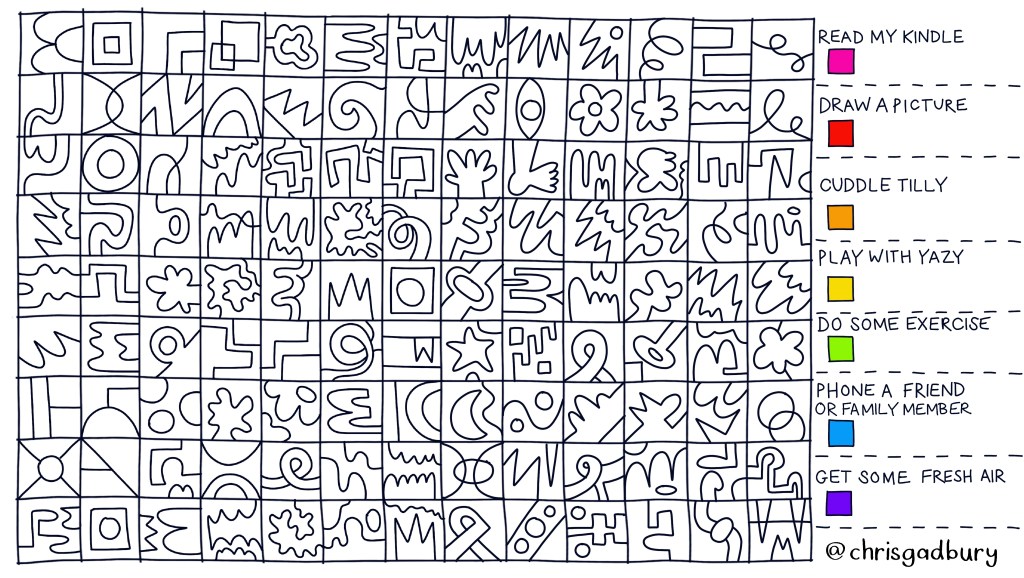 READ MY KINDLE
DRAW A PICTURE
CUDDLE TILLY
PLAY WITH YAZY
DO SOME EXERCISE
PHONE A FRIEND
OR FAMILY MEMBER
GET SOME FRESH AIR
@chrisgadbury